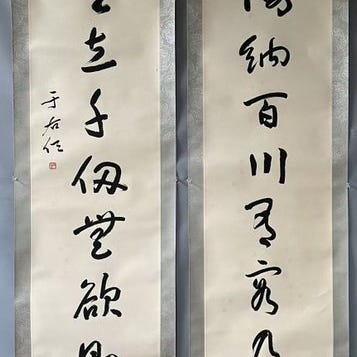 納百川有容乃
立千仞無欲則
于右任